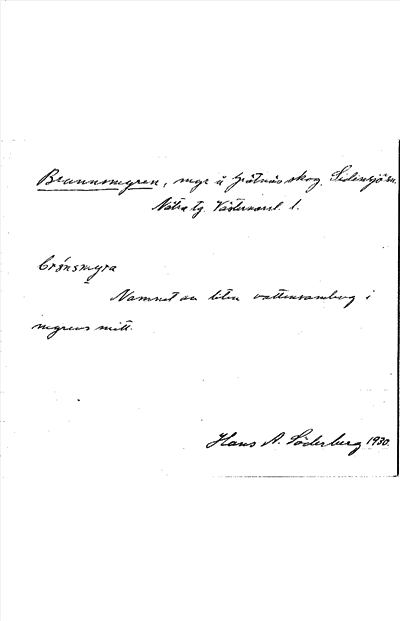 Brunnsmyren, myr å Grötnäs skog. Sidensjö sn.
Nätra tg. Västernorrl. l.
brønsmyra
Namnet av liten vattensamling i
myrens mitt.
Hans A. Söderberg 1930.